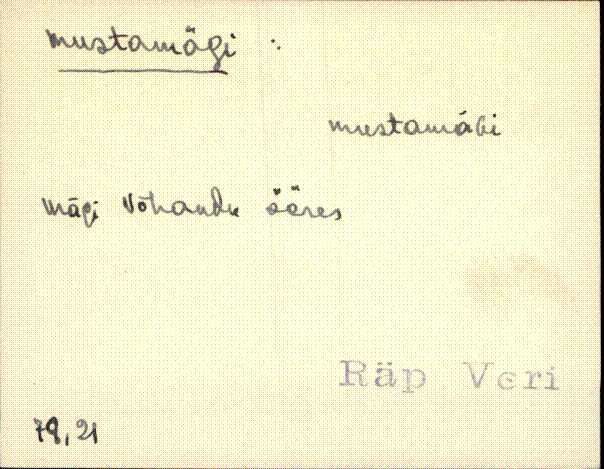 mustamägi :
mustamäki
mägi Võhandu ääres
Räp Veri
79, 21